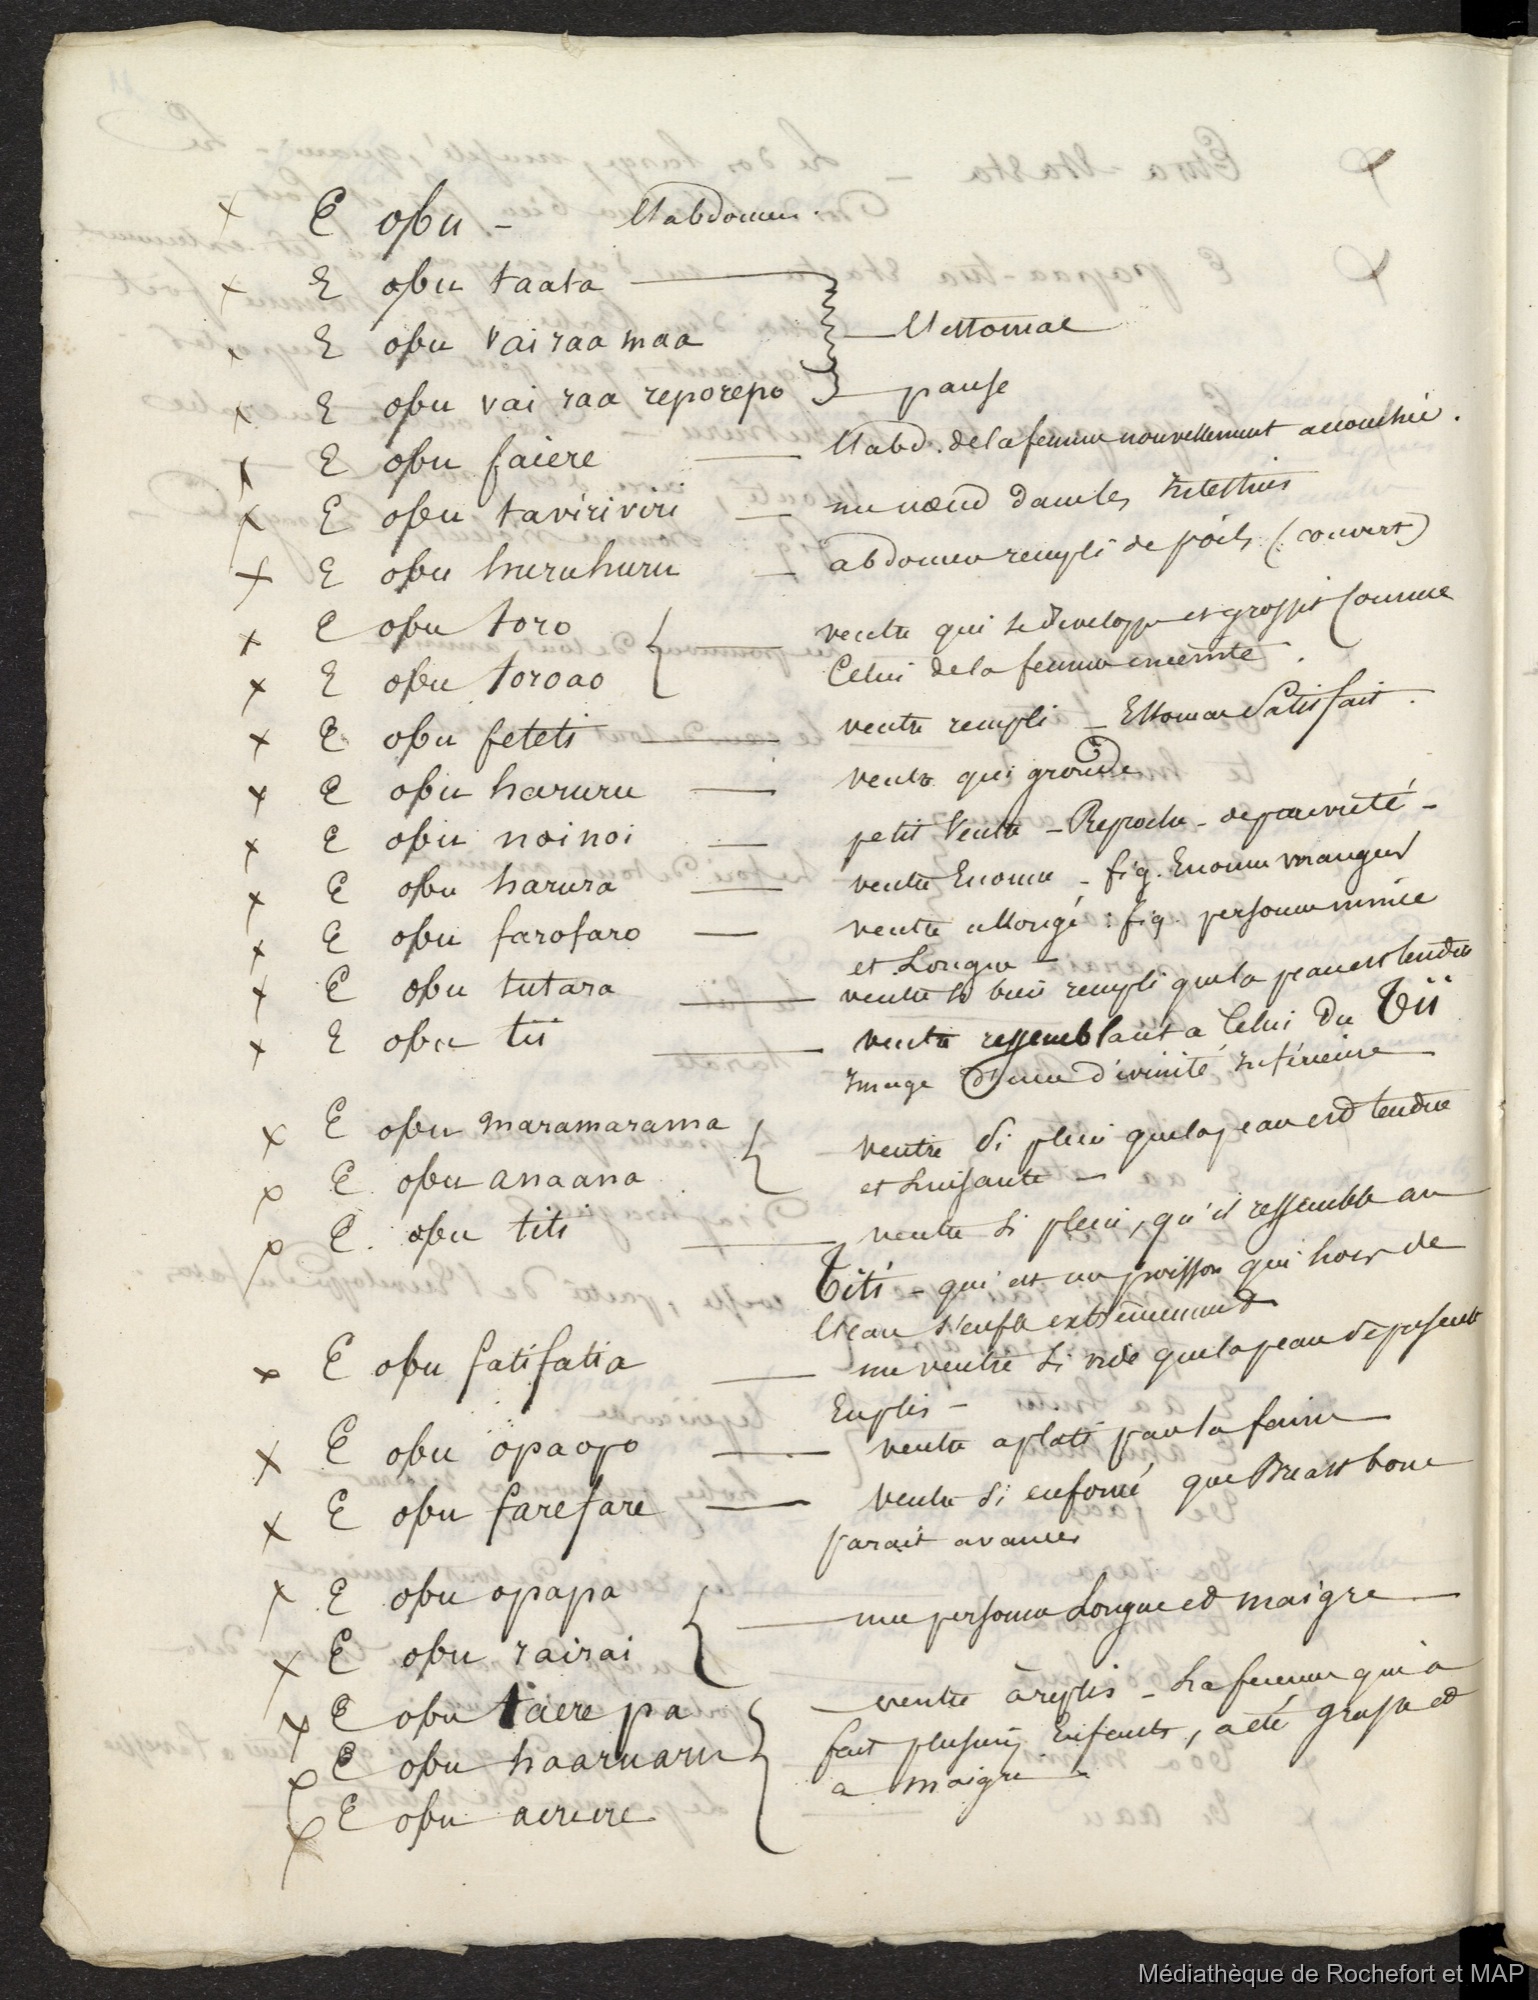 E obu - l'abdomen.
E obu taata
E obu vairaa maa l'estomac
E obu vai raa reporepo panse
E obu faiere l'abd. de la femme nouvellement accouchée.
E obu taviriviri un nœud dans les Intestins
E obu huruhuru abdomen rempli de poils (couvert)
E obu toro ventre qui se developpe et grossit comme
E obu toroao Celui de la femme enceinte.
E obu feteti ventre rempli - Estomac Satisfait.
E obu haruru ventre qui gronde
E obu noinoi petit Ventre - Reproche - de pauvreté -
E obu harura ventre Enorme - fig. Enorme mangeur
E obu farofaro ventre allongé: fig. personne mince
et Longue -
E obu tutara ventre si bien rempli que la peau est tendue
E obu tii ventre ressemblant a Celui du Tii
Image d'une divinité Inférieure
E obu maramarama ventre si plein que la peau est tendue
E obu anaana et Luisante -
E obu titi ventre si plein, qu'il ressemble au
Titi - qui est un poisson qui hors de
l'eau s'enfle extrêmement
E obu fatifatia un ventre si vide que la peau de presente
En plis -
E obu opaopo ventre aplati par la faim
E obu farefare ventre si enfoncé que Breast bone
parait avancer
E obu opapa une personne Longue et maigre
E obu rairai
E obu taere pa ventre à replis - La femme qui a
E obu haaruaru fait plusieurs Enfants, a été grasse et
E obu aereere a maigri -
Médiathèque de Rochefort et MAP